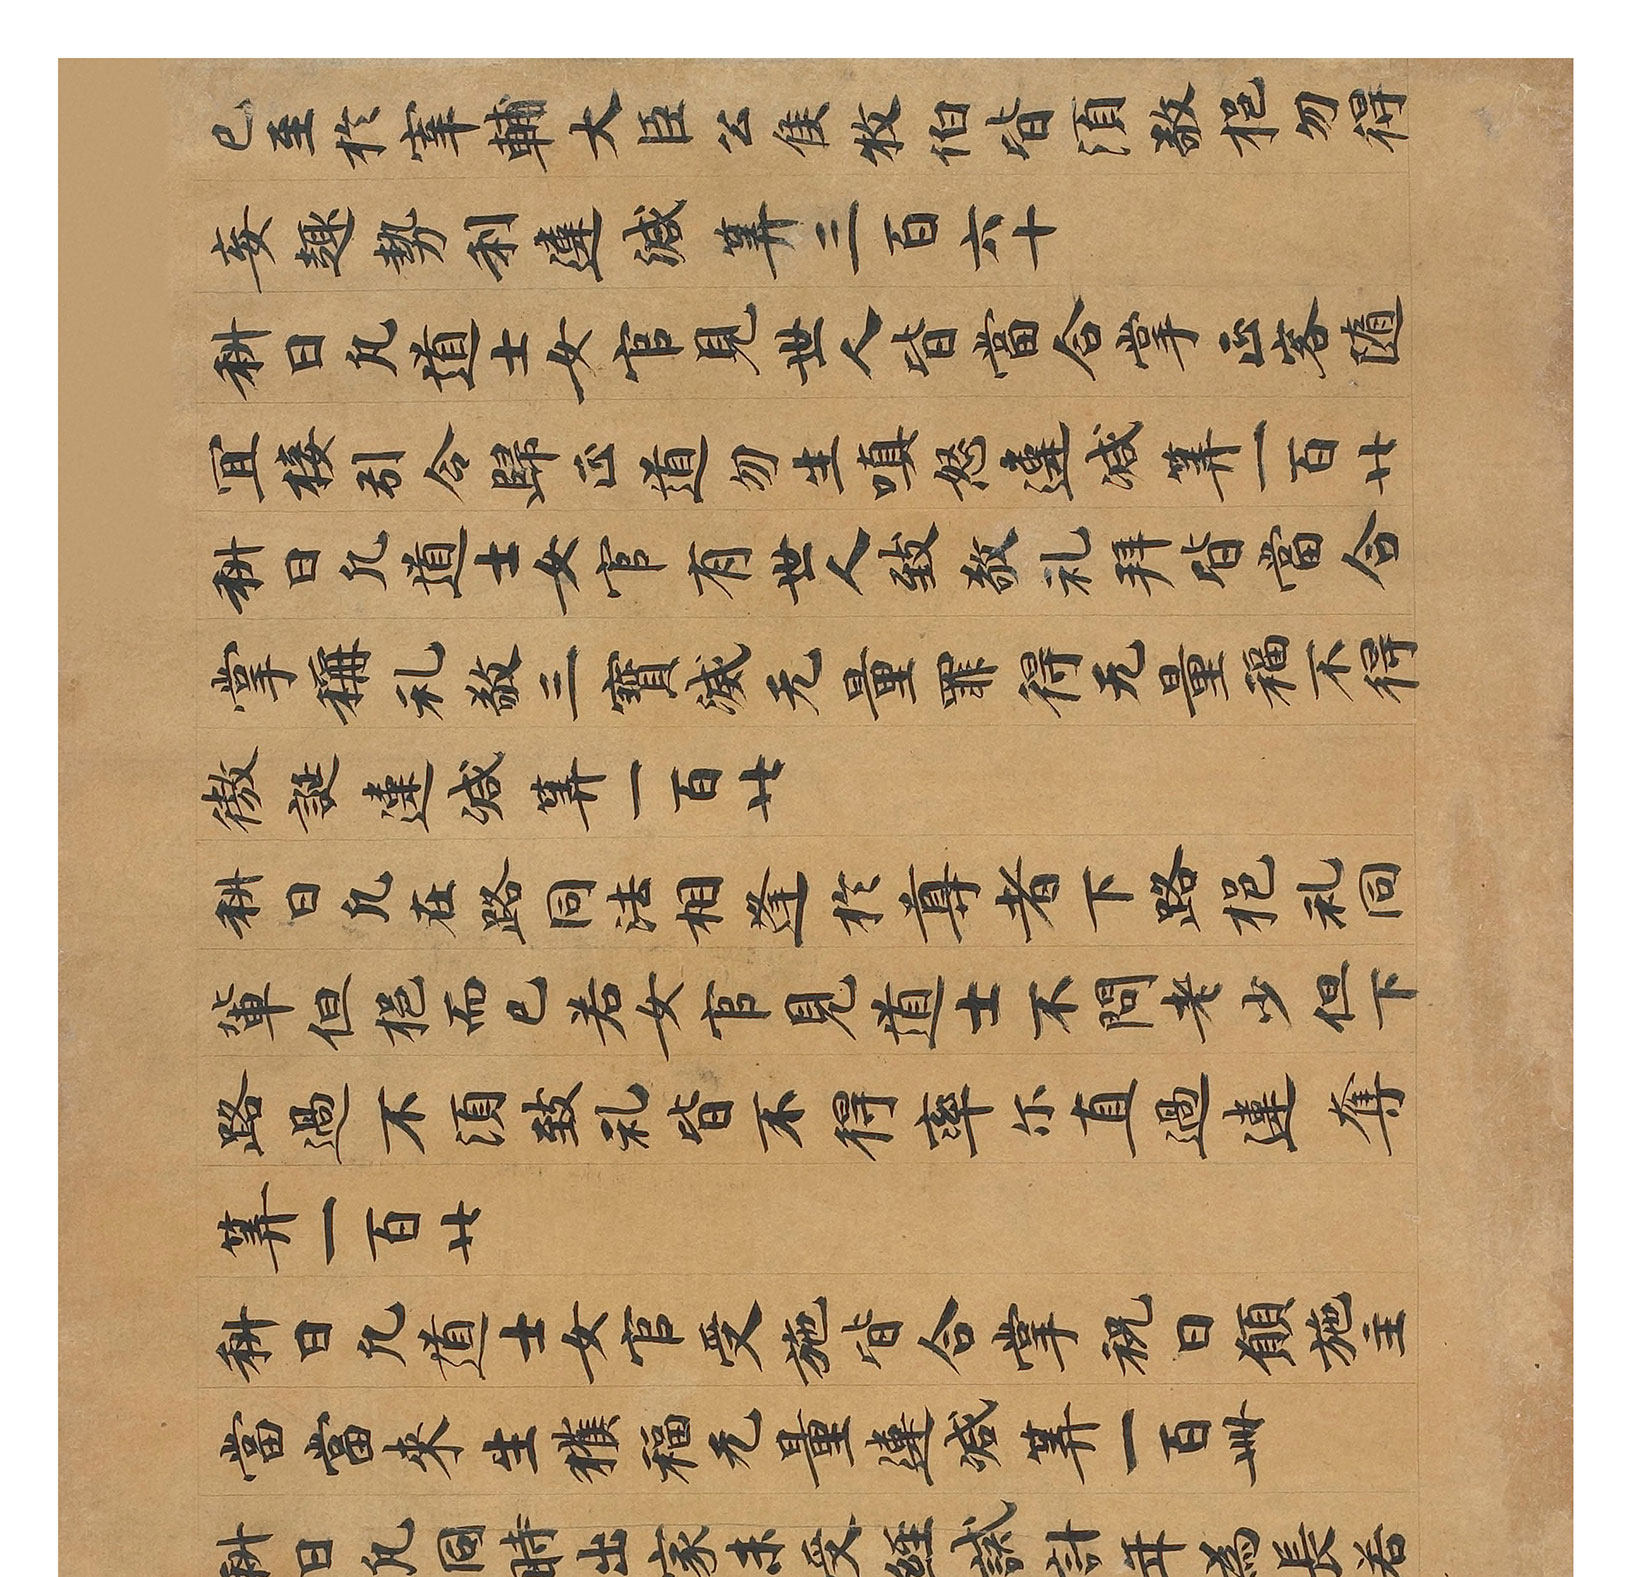 已至扵宰輔大臣公侯牧伯皆湏敬挹勿得
妄趍勢利違減筭三百六十
科曰凡道士女官見世人皆當合掌正容隨
宜接引令歸正道勿生嗔怒違減筭一百廿
科曰凡道士女官有世人致敬礼拜皆當合
掌稱礼敬三寶滅无量罪得无量福不得
慠誕違減筭一百廿
科曰凡在路同法相逢扵尊者下路挹礼同
軰但挹而已若女官見道士不問老少但下
路過不湏致礼皆不得率尒直過違奪
筭一百廿
科曰凡道士女官受施皆合掌祝曰願施主
當當来生獲福无量違減筭一百卌
科曰凡同時出家未受經誡計年為長若